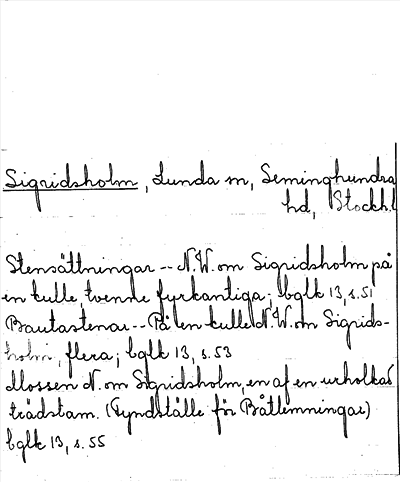 Sigridsholm, Lunda sn, Seminghundra
hd, Stockh.l
Stensättningar -- N.W. om Sigridsholm på
en kulle, tvenne fyrkantiga; bglk 13, s. 51
Bautastenar -- På en kulle N.W. om Sigrids-
holm, flera; bglk 13, s. 53
Mossen N. om Sigridsholm, en af en urholkad
trädstam. (Fyndställe för Båtlemningar)
bglk 13, s. 55